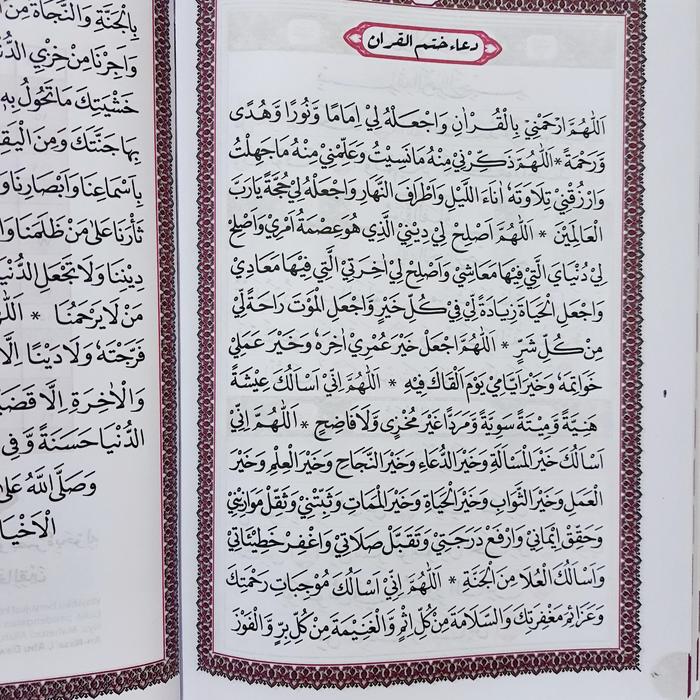 دعاء ختم القران
اَللّٰهُمَّ ارْحَمْنِيْ بِالْقُرْاٰنِ وَاجْعَلْهُ لِيْ اِمَامًا وَّنُوْرًا وَّهُدًى
وَّرَحْمَةً * اَللّٰهُمَّ ذَكِّرْنِيْ مِنْهُ مَانَسِيْتُ وَعَلِّمْنِيْ مِنْهُ مَاجَهِلْتُ
وَارْزُقْنِيْ تِلَاوَتَهٗ اٰنَاءَ اللَّيْلِ وَاَطْرَافَ النَّهَارِ وَاجْعَلْهُ لِيْ حُجَّةً يَارَبَّ
الْعَالَمِيْنَ * اَللّٰهُمَّ اَصْلِحْ لِيْ دِيْنِيَ الَّذِيْ هُوَعِصْمَةُ اَمْرِيْ وَاَصْلِحْ
لِيْ دُنْيَايَ الَّتِيْ فِيْهَا مَعَاشِيْ وَاَصْلِحْ لِيْ اٰخِرَتِيَ الَّتِيْ فِيْهَا مَعَادِيْ
وَاجْعَلِ الْحَيَاةَ زِيَادَةً لِّيْ فِيْ كُلِّ خَيْرٍ وَّاجْعَلِ الْمَوْتَ رَاحَةً لِّيْ
مِنْ كُلِّ شَرٍّ * اَللّٰهُمَّ اجْعَلْ خَيْرَ عُمْرِيْ اٰخِرَهٗ وَخَيْرَ عَمَلِيْ
خَوَاتِمَهٗ وَخَيْرَ اَيَّامِيْ يَوْمَ اَلْقَاكَ فِيْهِ * اَللّٰهُمَّ اِنِّيْ اَسْاَلُكَ عِيْشَةً
هَنِيَّةً وَّمِيْتَةً سَوِيَّةً وَّمَرَدًّا غَيْرَ مُخْزِيٍ وَّلَافَاضِحٍ * اَللّٰهُمَّ اِنِّيْ
اَسْاَلُكَ خَيْرَ الْمَسْاَلَةِ وَخَيْرَ الدُّعَاءِ وَخَيْرَ النَّجَاحِ وَخَيْرَ الْعِلْمِ وَخَيْرَ
الْعَمَلِ وَخَيْرَ الثَّوَابِ وَخَيْرَ الْحَيَاةِ وَخَيْرَ الْمَمَاتِ وَثَبِّتْنِيْ وَثَقِّلْ مَوَازِيْنِيْ
وَحَقِّقْ اِيْمَانِيْ وَارْفَعْ دَرَجَتِيْ وَتَقَبَّلْ صَلَاتِيْ وَاغْفِرْ خَطِيْئَاتِيْ
وَاَسْاَلُكَ الْعُلَا مِنَ الْجَنَّةِ * اَللّٰهُمَّ اِنِّيْ اَسْاَلُكَ مُوْجِبَاتِ رَحْمَتِكَ
وَعَزَائِمَ مَغْفِرَتِكَ وَالسَّلَامَةَ مِنْ كُلِّ اِثْمٍ وَّالْغَنِيْمَةَ مِنْ كُلِّ بِرٍّ وَّالْفَوْزَ
بِالْجَنَّةِ وَالنَّجَاةَ مِنَ
وَاَجِرْنَا مِنْ خِزْيِ الدُّنْ
خَشْيَتِكَ مَا تَحُوْلُ بِهٖ
بِهَا جَنَّتَكَ وَمِنَ الْيَقِ
بِاَسْمَاعِنَا وَاَبْصَارِنَا وَ
ثَأْرَنَا عَلٰى مَنْ ظَلَمَنَا وَا
دِيْنِنَا وَلَا تَجْعَلِ الدُّنْيَا
مَنْ لَا يَرْحَمُنَا * اَللّٰ
فَرَّجْتَهٗ وَلَا دَيْنًا اِلَّا
وَالْاٰخِرَةِ اِلَّا قَضَ
الدُّنْيَا حَسَنَةً وَّفِى
وَصَلَّى اللّٰهُ عَلٰى
الْاَخْيَا